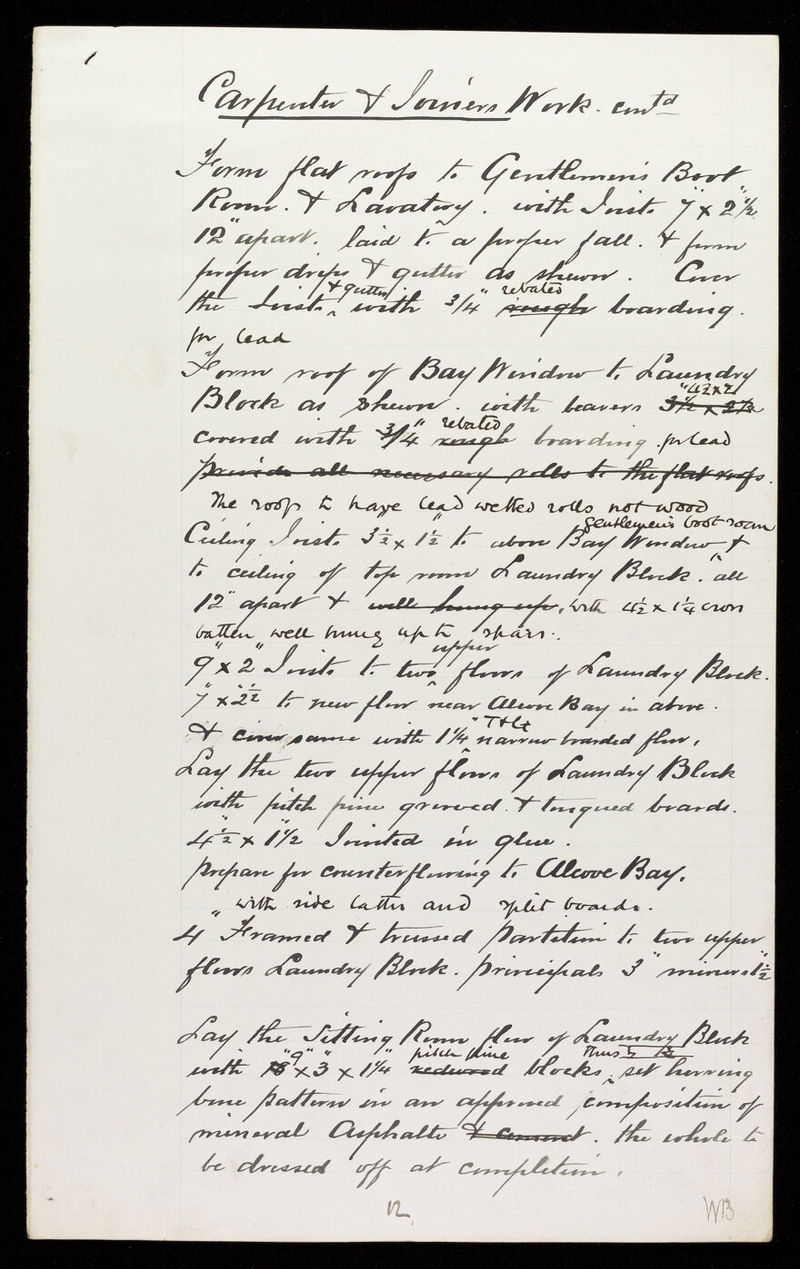 Carpenter & Joiners Work - contd
Form flat roofs to Gentlemen's Boot
Room. & Lavatory. with Joists 7" x 2½"
12" apart. laid to a proper fall. & form
proper drips & gutter as shewn. Cover
& gutter rebated
the Joists ^ with ¾" rough boarding.
for lead
Form roof of Bay Window to Laundry
4½ x 2
Block as shewn. with bearers 3½ x 2½
rebated
covered with ¾" rough boarding for lead
provide all necessary rolls to the flat roofs.
The roofs to have lead welted rolls not wood
Gentlemen's boot room
Ceiling Joists 3½ x 1½" to above Bay Window &
to ceiling of top room Laundry Block. all
12" apart & well hung up, with 4½ x 1¼ cross
batten well hung up to spars.
upper
9" x 2" Joists to two ^ floors of Laundry Block.
7" x 2½" to new floor near Alcove Bay in above.
T & G
& cover same with 1¼" narrow boarded floor.
Lay the two upper floors of Laundry Block
with pitch pine grooved & tongued boards.
4½" x 1½" Jointed in glue.
Prepare for counterflooring to Alcove Bay.
with side laths and split boards.
4" Framed & trussed Partition to two upper
floors Laundry Block. Principals 3" minors 1½"
Lay the Sitting Room floor of Laundry Block
9" pitch pine Thus
with 18" x 3" x 1¼" redwood blocks ^ set herring
bone pattern in an approved composition of
mineral Asphalte & cement. the whole to
be dressed off at completion.
12
WB